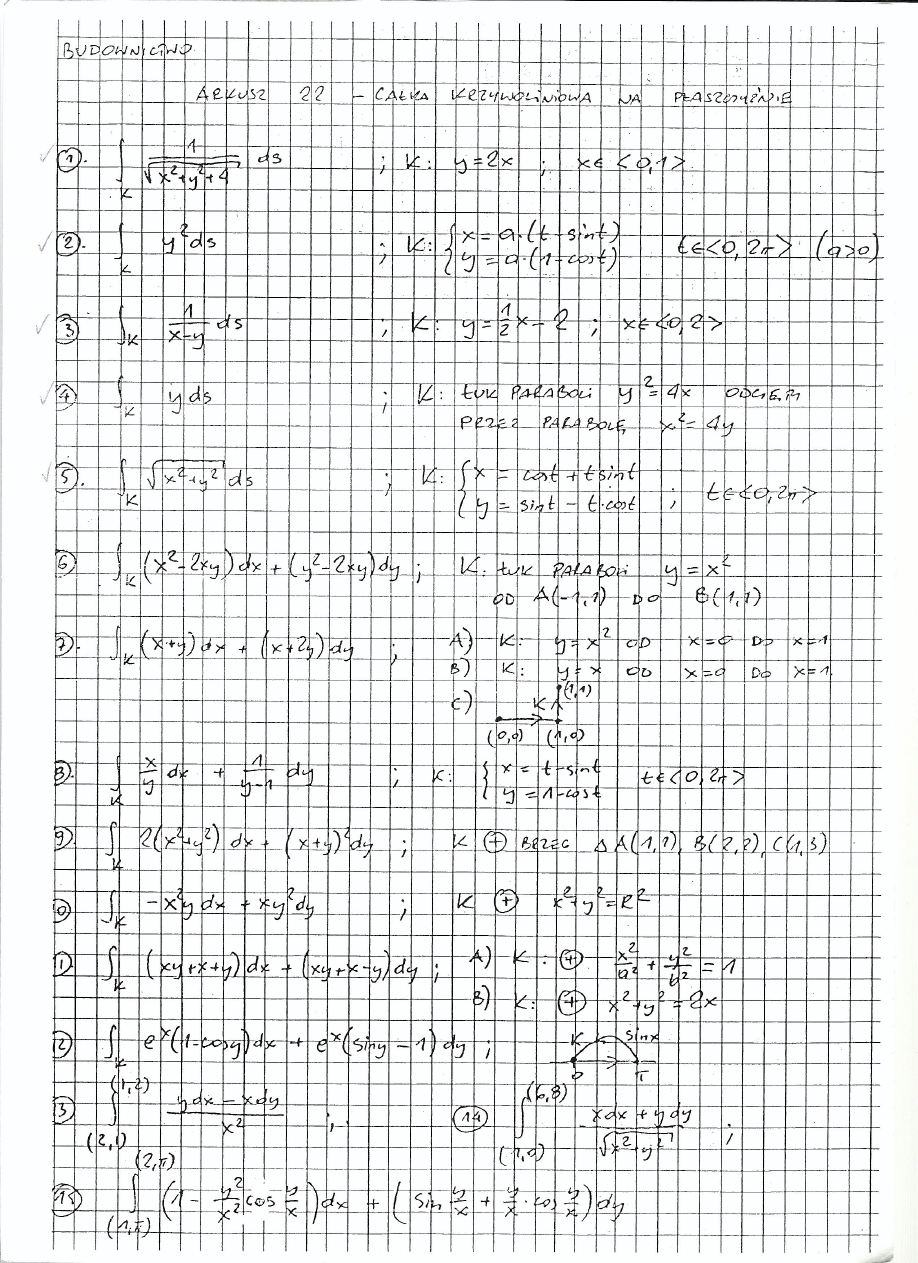 BUDOWNICTWO
ARKUSZ 22 – CAŁKA KRZYWOLINIOWA NA PŁASZCZYŹNIE
①. ∫_K 1/√(x²+y²+4) ds ; K: y=2x ; x∈<0,1>
②. ∫_K y²ds ; K: { x=a·(t-sint) y=a·(1-cost) t∈<0,2π> (a>0)
③ ∫_K 1/(x-y) ds ; K: y=½x-2 ; x∈<0,2>
④ ∫_K yds ; K: ŁUK PARABOLI y²=4x ODCIĘTY
PRZEZ PARABOLĘ x²=4y
⑤. ∫_K √(x²+y²) ds ; K: { x = cost+tsint y = sint-t·cost ; t∈<0,2π>
⑥ ∫_K (x²-2xy)dx+(y²-2xy)dy ; K: ŁUK PARABOLI y=x²
OD A(-1,1) DO B(1,1)
7). ∫_K (x+y)dx + (x+2y)dy ; A) K: y=x² OD x=0 DO x=1
B) K: y=x OD x=0 DO x=1.
C) K (1,1)
(0,0) (1,0)
8). ∫_K x/y dx + 1/(y-1) dy ; K: { x = t-sint y = 1-cost t∈<0,2π>
9). ∫_K 2(x²+y²)dx + (x+y)²dy ; K ⊕ BRZEG Δ A(1,1), B(2,2), C(1,3)
0) ∫_K -x²y dx + xy²dy ; K ⊕ x²+y²=R²
1). ∫_K (xy+x+y)dx + (xy+x-y)dy ; A) K: ⊕ x²/a² + y²/b² = 1
B) K: ⊕ x²+y²=2x
2) ∫_K eˣ(1-cosy)dx + eˣ(siny-1)dy ; K sinx
0 π
3) ∫_(2,1)^(1,2) (ydx-xdy)/x² ; ⑭ ∫_(1,0)^(6,8) (xdx+ydy)/√(x²+y²) ;
⑮ ∫_(1,π)^(2,π) (1 - y²/x² cos y/x)dx + (sin y/x + y/x · cos y/x)dy